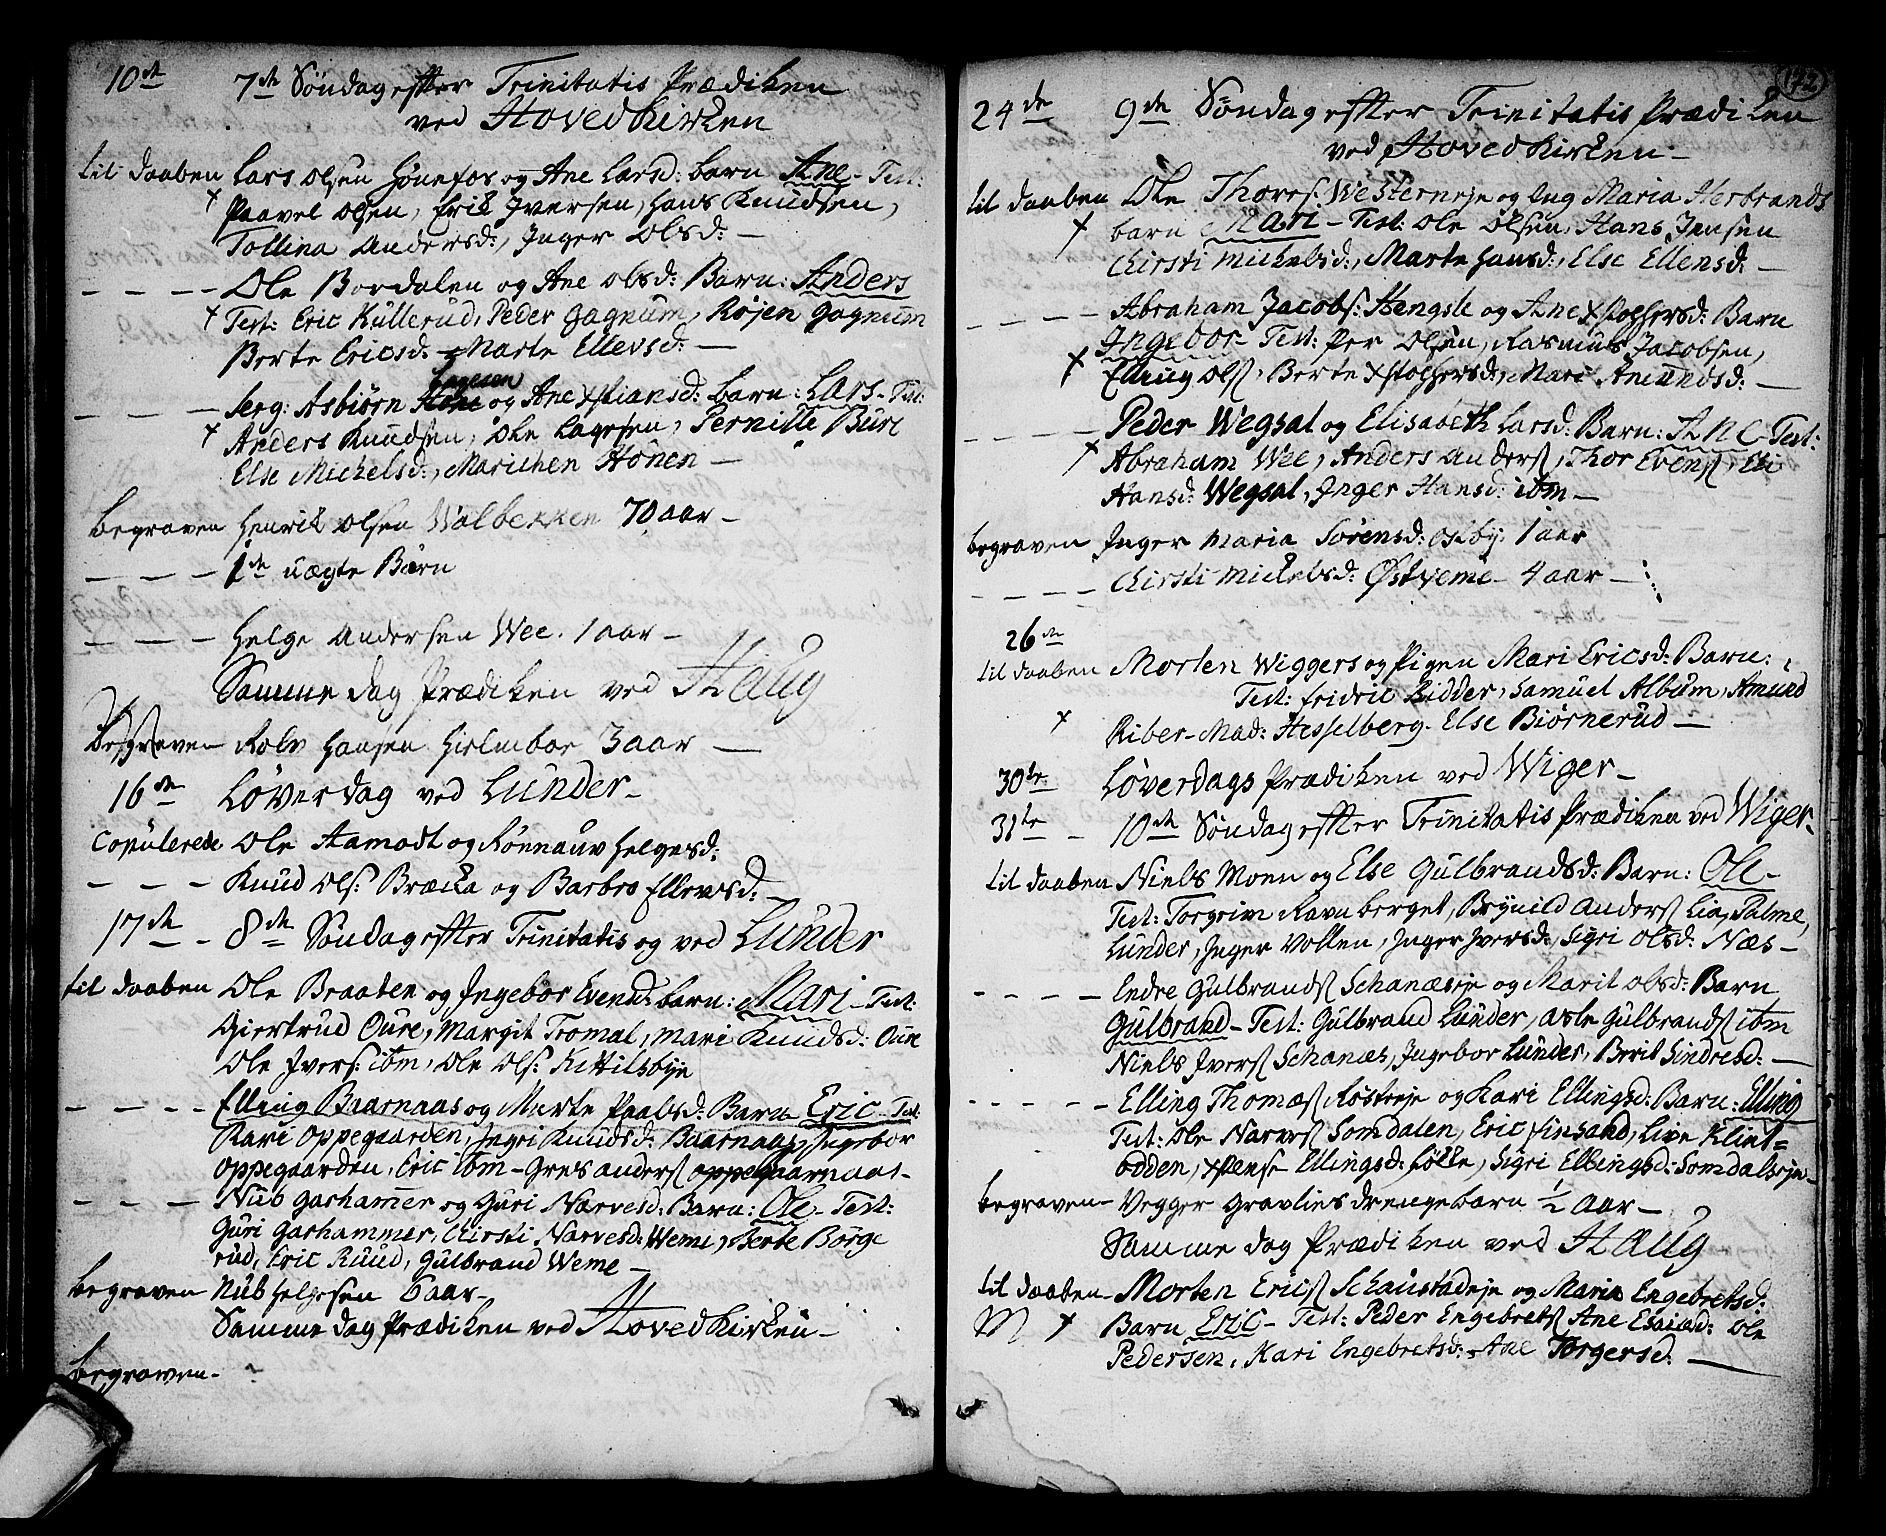 10de 7de Søndag effter Trinitatis Prædiken
ved Hoved Kirken
til daaben Lars Olsen Hønefos og Ane Larsd: barn Ane - Test:
Paavel Olsen, Erik Iversen, Hans Knudsen,
Tollina Andersd:, Inger Olsd: -
- - - - Ole Bordalen og Ane Olsd: Barn: Anders
Test: Eric Kullerud, Peder Gagnum, Røjen Gagnum
Berte Ericsd: Marte Ellevsd: -
- - - - Serg: Asbiørn og Ane Xstiansd: barn: Lars - Test:
Anders Knudsen, Ole Lagesen, Pernille Bure
Else Michelsd:, Marichen Hønen -
begraven Henrik Olsen Wolbekken 70 aar -
- - - 1de uægte Barn
- - - Helge Andersen Wee. 1 aar -
Samme dag Prædiken ved Haug
Begraven Rolv Hansen Hielmboe 3 aar -
16de Løverdag ved Lunder -
Copulerede Ole Aamodt og Rønnauv Helgesd:
- - - Knud Ols: Bræcka og Barbro Ellevsd: -
17de - 8de Søndag effter Trinitatis og ved Lunder
til daaben Ole Braaten og Ingebor Evensd: barn: Mari - Test:
Giertrud Oure, Margit Tromal, Mari Knudsd: Oure
Ole Ivers: ibm, Ole Ols: Kittilsbye
- - - - Elling Baarnaas og Marte Paalsd: Barn Eric - Test:
Kari Oppegaarden, Ingri Knudsd: Baarnaas, Ingebor
Oppegaarden, Eric ibm - Anders
- - - Niels Garhamer og Guri Narvesd: Barn: Ole - Test:
Guri Garhammer, Kirsti Narvesd: Weme, Berte Børge
rud, Eric Ruud, Gulbrand Weme -
begraven Niels Helgesen 6 aar -
Samme dag Prædiken ved Hoved Kirken -
begraven -
142
24de 9de Søndag effter Trinitatis Prædiken
ved Hoved Kirken -
til daaben Ole Thores: Westerneje og Ing Maria Herbrands
barn Mari - Test: Ole Olsen, Hans Jensen
Kirsti Mickelsd:, Marte Hansd:, Else Ellensd: -
- - - - Abraham Jacobs: Hengsle og Ane Xstoffersd: Barn
Ingebor - Test: Per Olsen, Rasmus Jacobsen,
Elling Ols:, Berte Xstoffersd:, Mari Amundsd: -
- - - - Peder Wegsal og Elisabeth Larsd: Barn: Ane - Test:
Abraham Wee, Anders Anders:, Thor Evens:, Eli
Hansd: Wegsal, Inger Hansd: ibm -
begraven Inger Maria Sørensd: Osbÿ. 1 aar
- - - - Kirsti Mickelsd: Østhjeme - 4 aar -
26de
til daaben Morten Wiggers og Pigen Mari Ericsd: Barn:
Test: Fridric Bidder, Samuel Album, Amund
Riber - Mad: Hesselberg. Else Biørnerud -
30te Løverdags Prædiken ved Wiger -
31te - 10de Søndag effter Trinitatis Prædiken ved Wiger -
til daaben Niels Moen og Else Gulbrandsd: Barn: Ole -
Test: Torgrim Ravnberget, Brynild Anders: Lia, Palme,
Lunder, Inger Vollen, Inger Iversd:, Sigri Olsd: Næs -
- - - - Endre Gulbrands: Schanæseje og Marit Olsd: Barn
Gulbrand - Test: Gulbrand Lunder, Asle Gulbrands: ibm
Niels Ivers: Schanæs, Ingebor Lunder, Berit Sindresd: -
- - - - Elling Thomas: Røsteje og Kari Ellingsd: Barn: Elling
Test: Ole Narves: Somdalen, Eric Finsand, Live Klint=
odden, Xstense Ellingsd: Følle, Sigri Ellingsd: Somdalseje -
begraven - Vegger Gravlies drengebarn ½ aar -
Samme dag Prædiken ved Haug
til daaben - Morten Erics: Schaustadeje og Maria Engebretsd:
M Barn Eric - Test: Peder Engebrets: Ane Esaiæd: Ole
Pedersen, Kari Engebretsd: Ane Torgersd: -